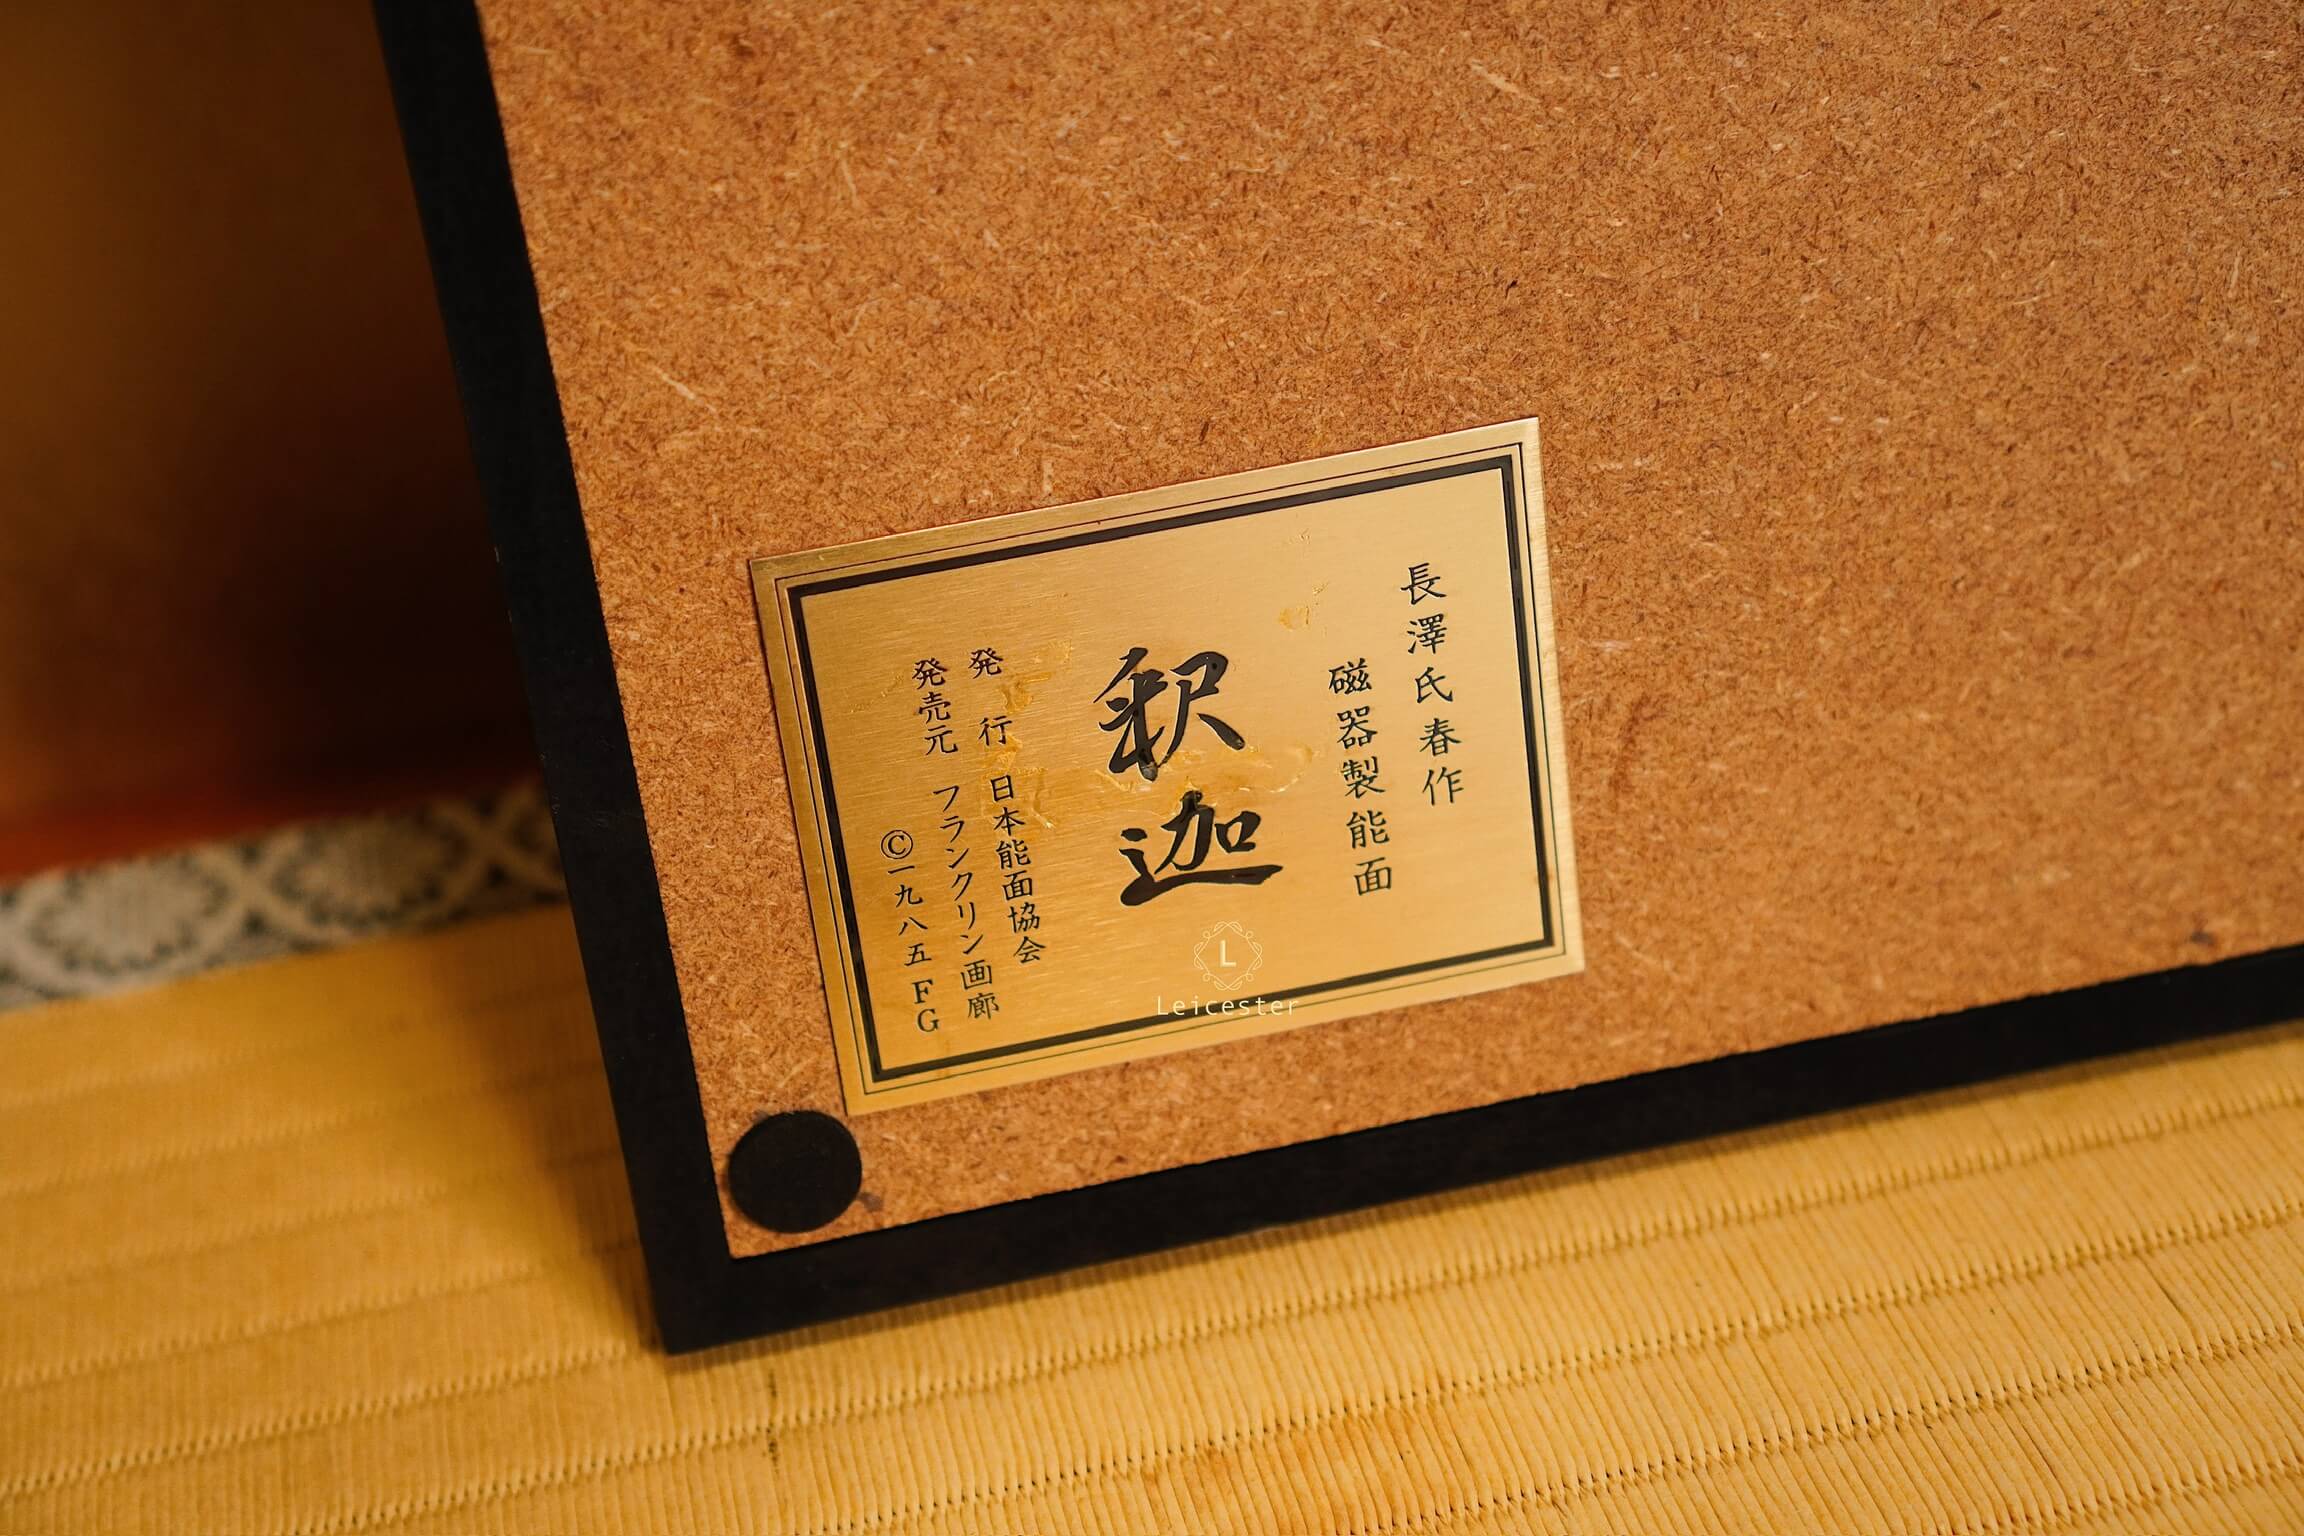 長澤氏春作
磁器製能面
釈迦
発行 日本能面協会
発売元 フランクリン画廊
©一九八五 FG
L
Leicester